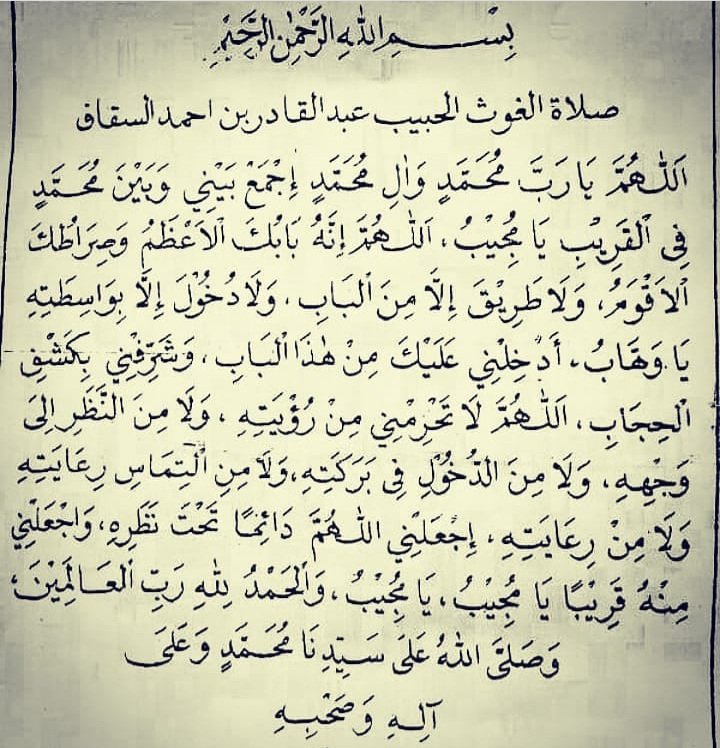 بِسْمِ اللهِ الرَّحْمٰنِ الرَّحِيْمِ
صلاة الغوث الحبيب عبد القادر بن احمد السقاف
اَللّٰهُمَّ يَا رَبَّ مُحَمَّدٍ وَاٰلِ مُحَمَّدٍ اِجْمَعْ بَيْنِيْ وَبَيْنَ مُحَمَّدٍ
فِى الْقَرِيْبِ يَا مُجِيْبُ، اَللّٰهُمَّ إِنَّهُ بَابُكَ الْاَعْظَمُ وَصِرَاطُكَ
الْاَقْوَمُ، وَلَا طَرِيْقَ إِلَّا مِنَ الْبَابِ، وَلَا دُخُوْلَ إِلَّا بِوَاسِطَتِهِ
يَا وَهَّابُ، أَدْخِلْنِيْ عَلَيْكَ مِنْ هٰذَا الْبَابِ، وَشَرِّفْنِيْ بِكَشْفِ
الْحِجَابِ، اَللّٰهُمَّ لَا تَحْرِمْنِيْ مِنْ رُؤْيَتِهِ، وَلَا مِنَ النَّظَرِ اِلَى
وَجْهِهِ، وَلَا مِنَ الدُّخُوْلِ فِى بَرَكَتِهِ، وَلَا مِنِ الْتِمَاسِ رِعَايَتِهِ
وَلَا مِنْ رِعَايَتِهِ، اِجْعَلْنِيْ اللّٰهُمَّ دَائِمًا تَحْتَ نَظَرِهِ، وَاجْعَلْنِيْ
مِنْهُ قَرِيْبًا يَا مُجِيْبُ، يَا مُجِيْبُ، وَالْحَمْدُ لِلّٰهِ رَبِّ الْعَالَمِيْنَ،
وَصَلَّى اللهُ عَلَى سَيِّدِنَا مُحَمَّدٍ وَعَلَى
آلِهِ وَصَحْبِهِ